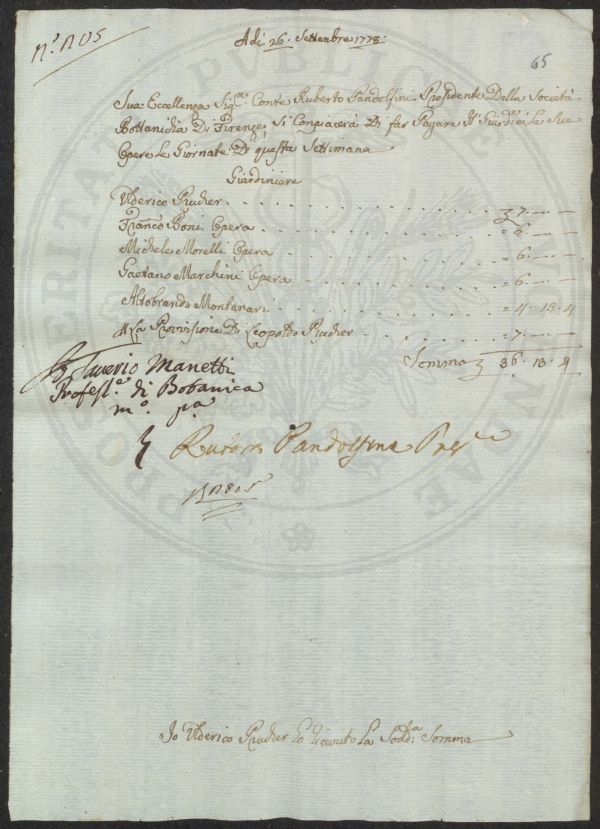 n.º 1105
Adi 26. Settembre 1778.
65
Sua Eccellenza Sig.re Conte Ruberto Pandolfini Presidente Della Società
Bottanicha Di Firenze, Si Conpiacerà Di far Pagare Il Giard.re e Le Sue
Opere Le Giornate Di questa Settimana
Giardiniere
Ulderico Prucher 7. — —
Franco Boni Opera = 6. — —
Michele Morelli Opera = 6. — —
Gaetano Marchini Opera = 6. — —
Altobrando Montanari = 4. 13. 4
A La Provisione Di Leopoldo Prucher = 7. — —
Somma 36. 13. 4
Saverio Manetti
Profess.e di Botanica
m.o p.a
Pandolfini Pres.e
Io Ulderico Prucher ò ricevuto La Sodd.a Somma
PROSPERITATI PUBLICAE AUGENDAE